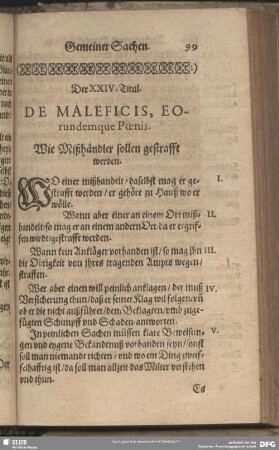 Gemeiner Sachen. 99
Der XXIV. Titul.
DE MALEFICIS, EO-
rundemque Pœnis.
Wie Mißhändler sollen gestrafft
werden.
WO einer mißhandelt / daselbst mag er ge- I.
strafft werden / er gehöre zu Hauß wo er
wölle.
Wann aber einer an einem Ort miß- II.
handelt / so mag er an einem andern Ort / da er ergrif-
fen wird / gestrafft werden.
Wann kein Ankläger vorhanden ist / so mag ihn III.
die Obrigkeit von ihres tragenden Ampts wegen /
straffen.
Wer aber einen will peinlich anklagen / der muß IV.
Versicherung thun / daß er seiner Klag wil folgen / uñ
ob er die nicht außführet / dem Beklagten / umb zuge-
fügten Schimpff und Schaden antworten.
In peinlichen Sachen müssen klare Beweisun- V.
gen und eygene Bekandenuß vorhanden seyn / onst
soll man niemandt richten / und wo ein Ding zweif-
felhafftig ist / da soll man allzeit das Milter verstehen
und thun.
Es
SLUB